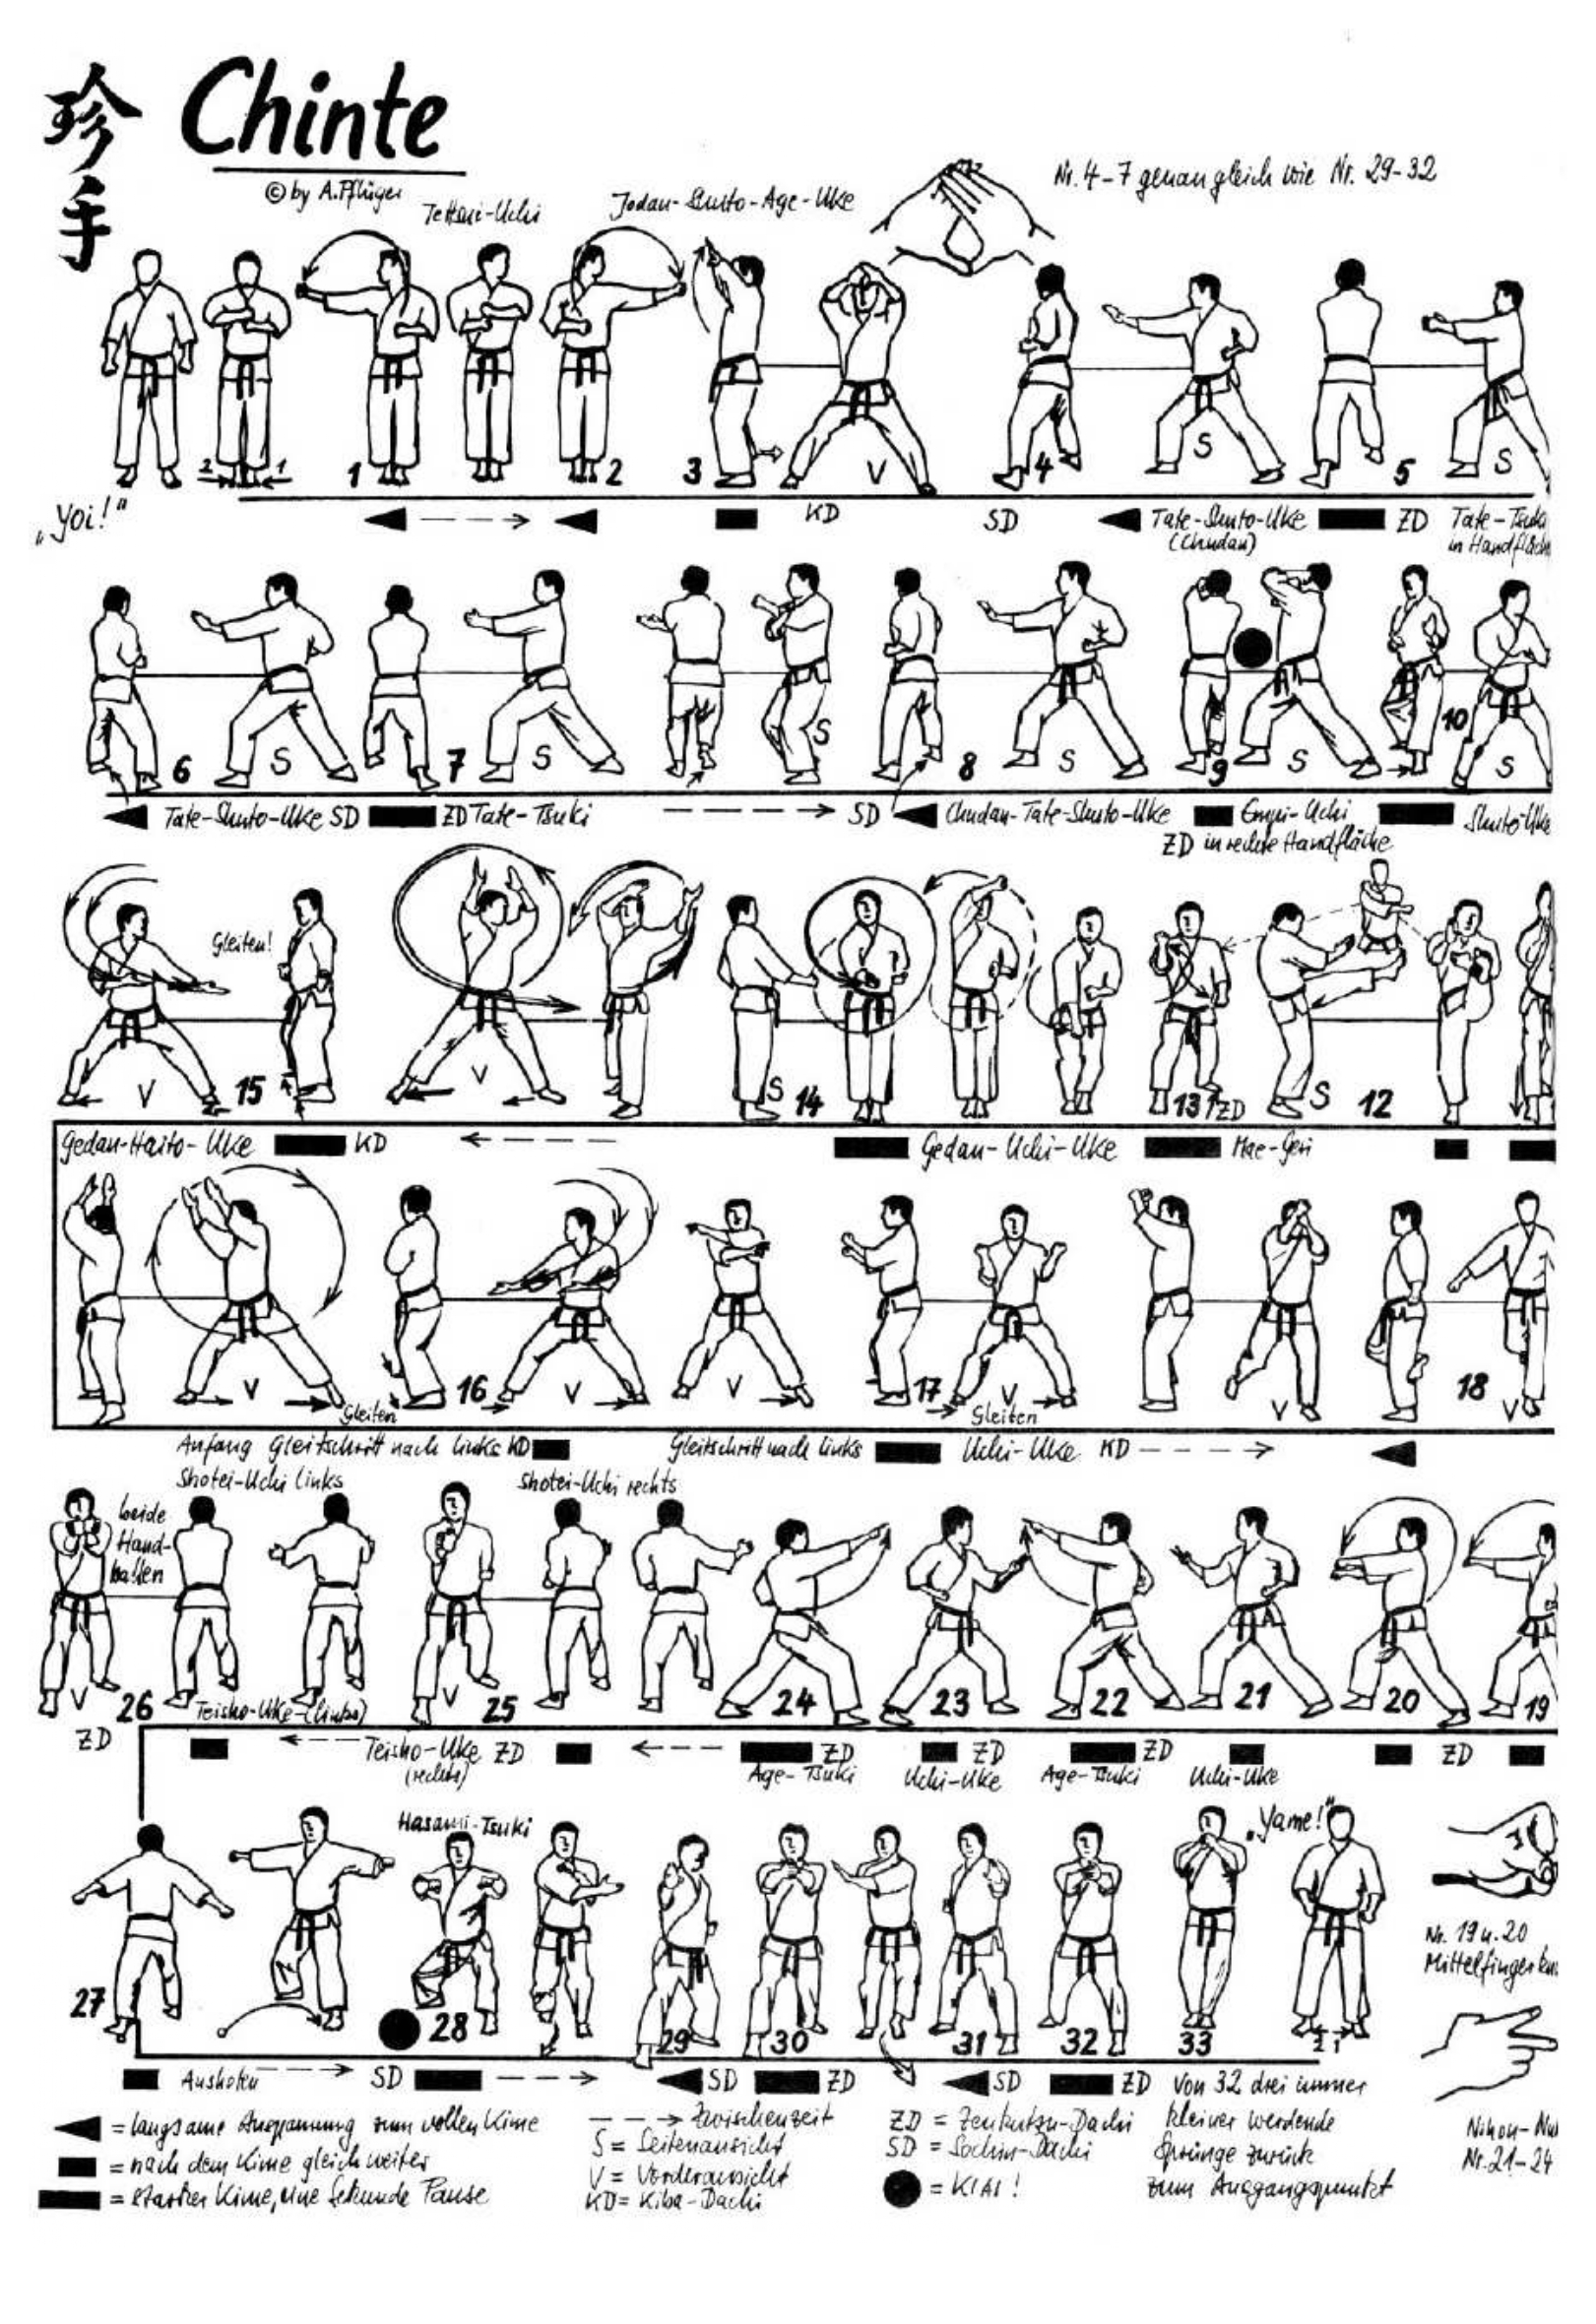 珍手
Chinte
© by A. Pflüger
Tettsui-Uchi
Jodan-Shuto-Age-Uke
Nr. 4-7 genau gleich wie Nr. 29-32
2 1
1 2 3 V 4 S 5 S
„Yoi!“
KD SD Tate-Shuto-Uke ZD Tate-Tsuki
(Chudan) in Handfläche
6 S 7 S S 8 S 9 S 10 S
Tate-Shuto-Uke SD ZD Tate-Tsuki SD Chudan-Tate-Shuto-Uke Empi-Uchi Shuto-Uke
ZD in rechte Handfläche
Gleiten!
V 15 V S 14 13 ZD S 12
Gedan-Haito-Uke KD Gedan-Uchi-Uke Mae-Geri
V 16 V V 17 V V 18 V
Gleiten Gleiten
Anfang Gleitschritt nach links KD Gleitschritt nach links Uchi-Uke KD
Shotei-Uchi links Shotei-Uchi rechts
beide
Hand-
ballen
V 26 Teisho-Uke (links) V 25 24 23 22 21 20 19
ZD Teisho-Uke ZD ZD ZD ZD ZD
(rechts) Age-Tsuki Uchi-Uke Age-Tsuki Uchi-Uke
Hasami-Tsuki
„Yame!“
27 28 29 30 31 32 33 2 1
Nr. 19 u. 20
Mittelfinger
Ausholen SD SD ZD SD ZD Von 32 drei immer
kleiner werdende
Sprünge zurück
zum Ausgangspunkt
= langsame Anspannung zum vollen Kime
= nach dem Kime gleich weiter
= starker Kime, eine Sekunde Pause
= Zwischenzeit
S = Seitenansicht
V = Vorderansicht
KD = Kiba-Dachi
ZD = Zenkutsu-Dachi
SD = Sochin-Dachi
= KIAI!
Nihon-Nu
Nr. 21-24